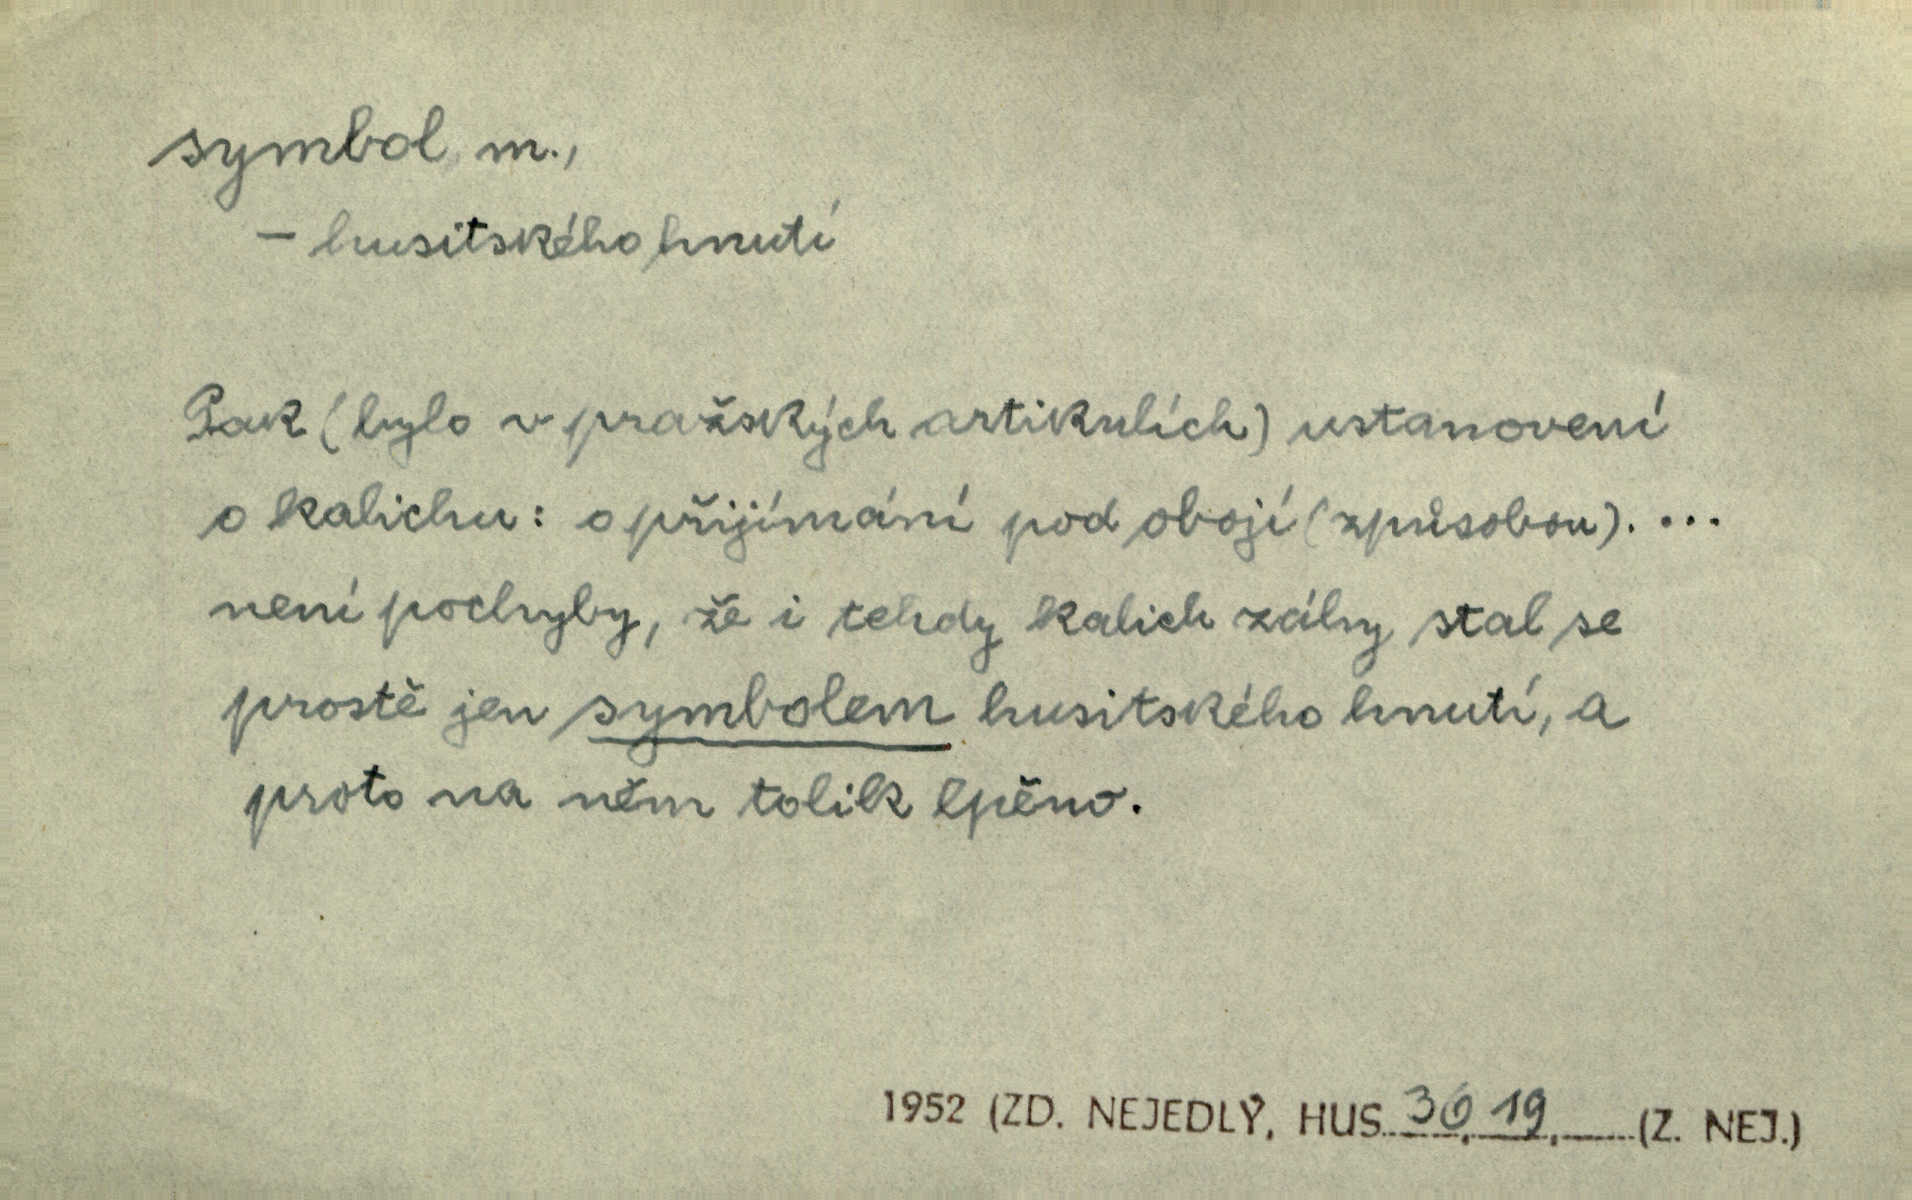 symbol, m.,
– husitského hnutí
Pak (bylo v pražských artikulích) ustanovení
o kalichu: o přijímání pod obojí (způsobou). ...
není pochyby, že i tehdy kalich záhy stal se
prostě jen symbolem husitského hnutí, a
proto na něm tolik lpěno.
1952 (ZD. NEJEDLÝ, HUS 36, 19, (Z. NEJ.)